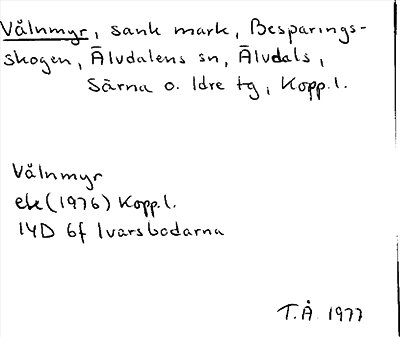 Vålnmyr, sank mark, Besparings-
skogen, Älvdalens sn, Älvdals,
Särna o. Idre tg, Kopp.l.
Vålnmyr
ek (1976) Kopp.l.
14D 6f Ivarsbodarna
T.Å. 1977